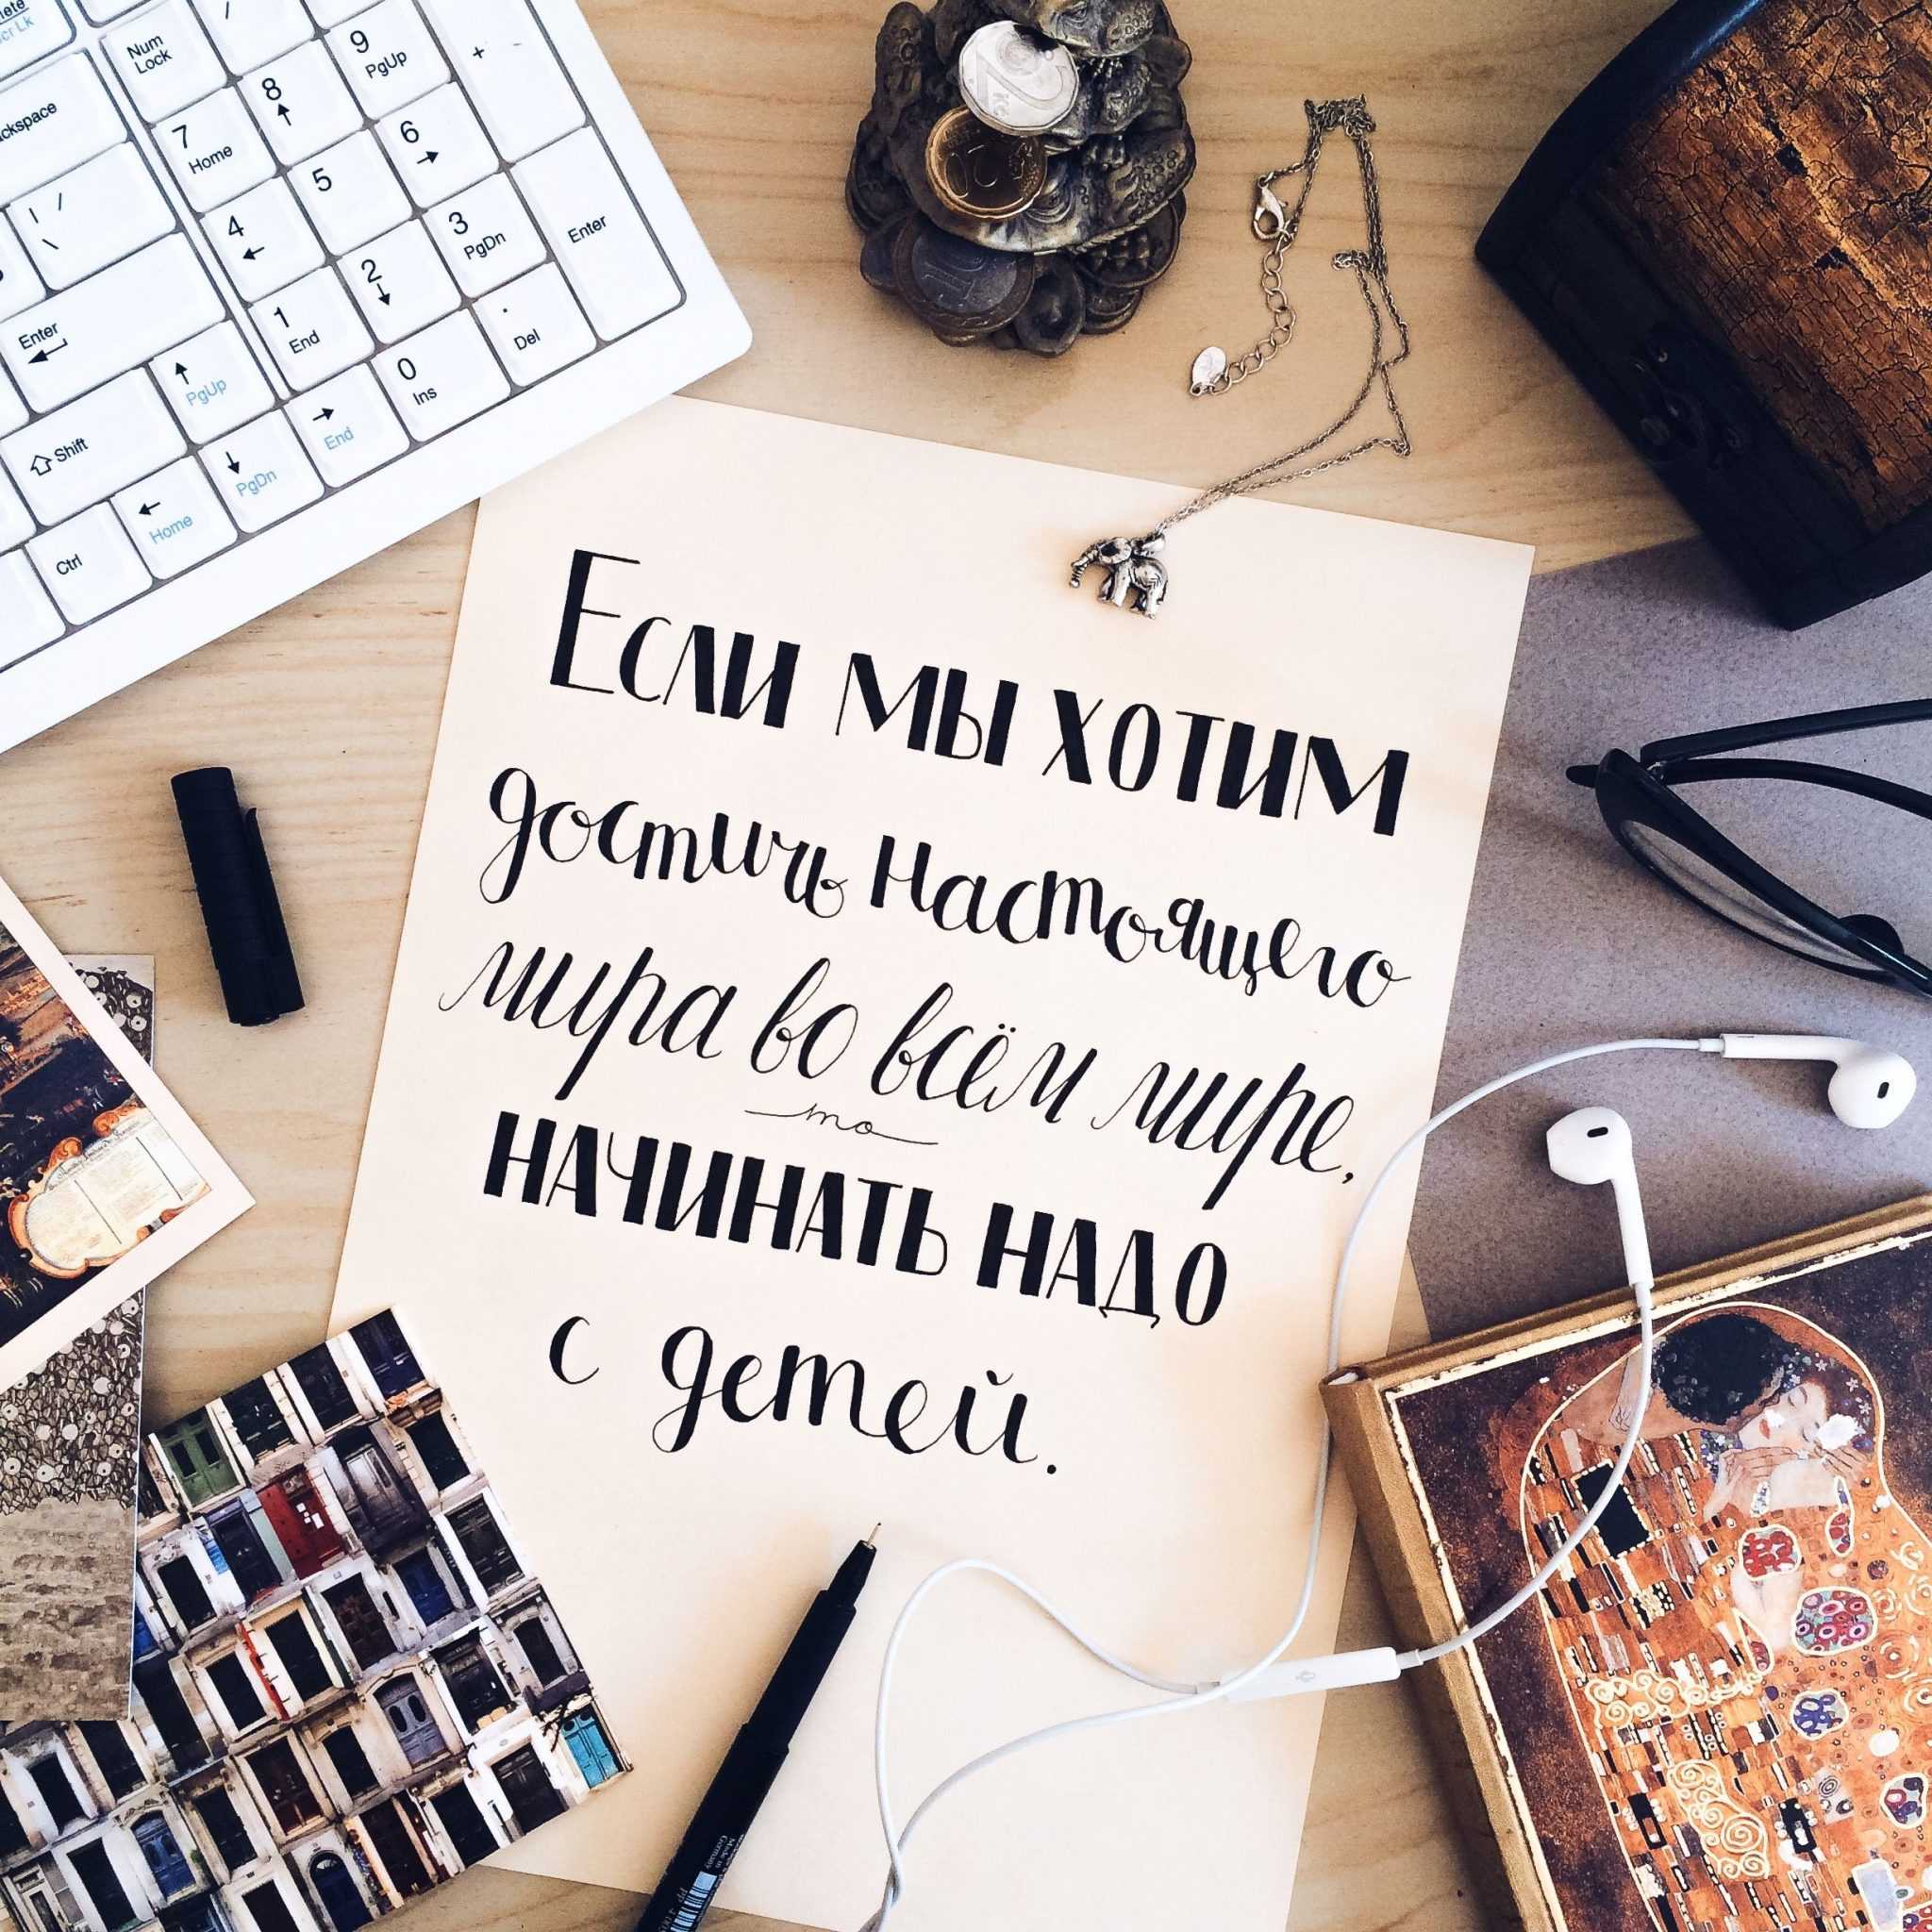 Если мы хотим
достичь настоящего
мира во всём мире,
то
начинать надо
с детей.
Num Lock
9 PgUp
+
8
7 Home
6
5
4
3 PgDn
2
1 End
Enter
0 Ins
. Del
Enter
Shift
PgUp
PgDn
End
Home
Ctrl
2 Kč
20
Made in
Germany